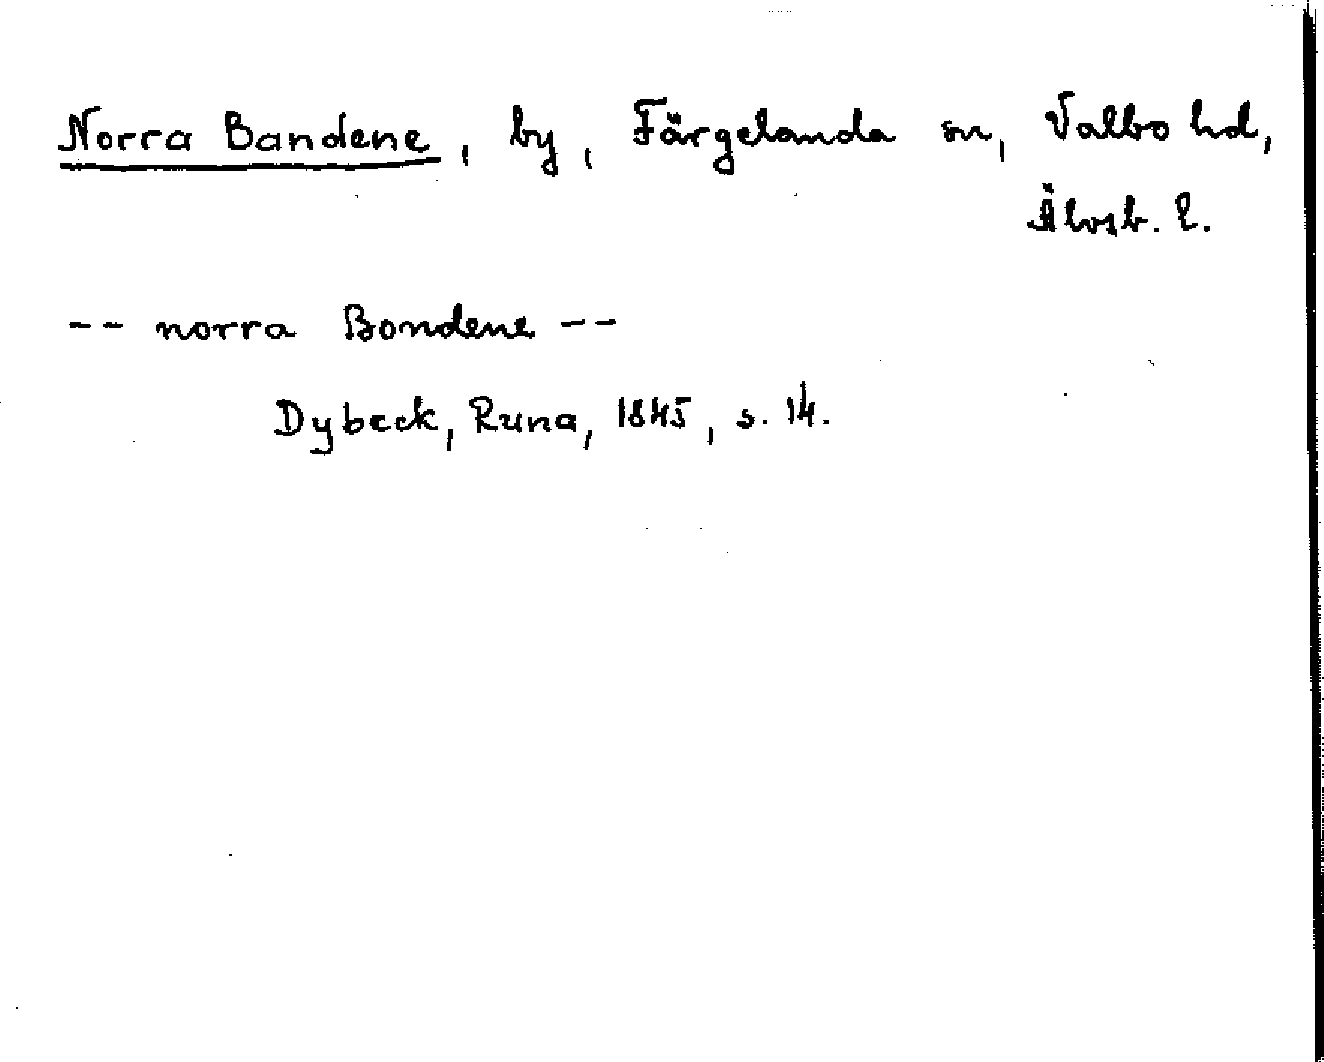 Norra Bandene, by, Färgelanda sn, Valbo hd,
Älvsb. l.
-- norra Bondene --
Dybeck, Runa, 1845, s. 14.